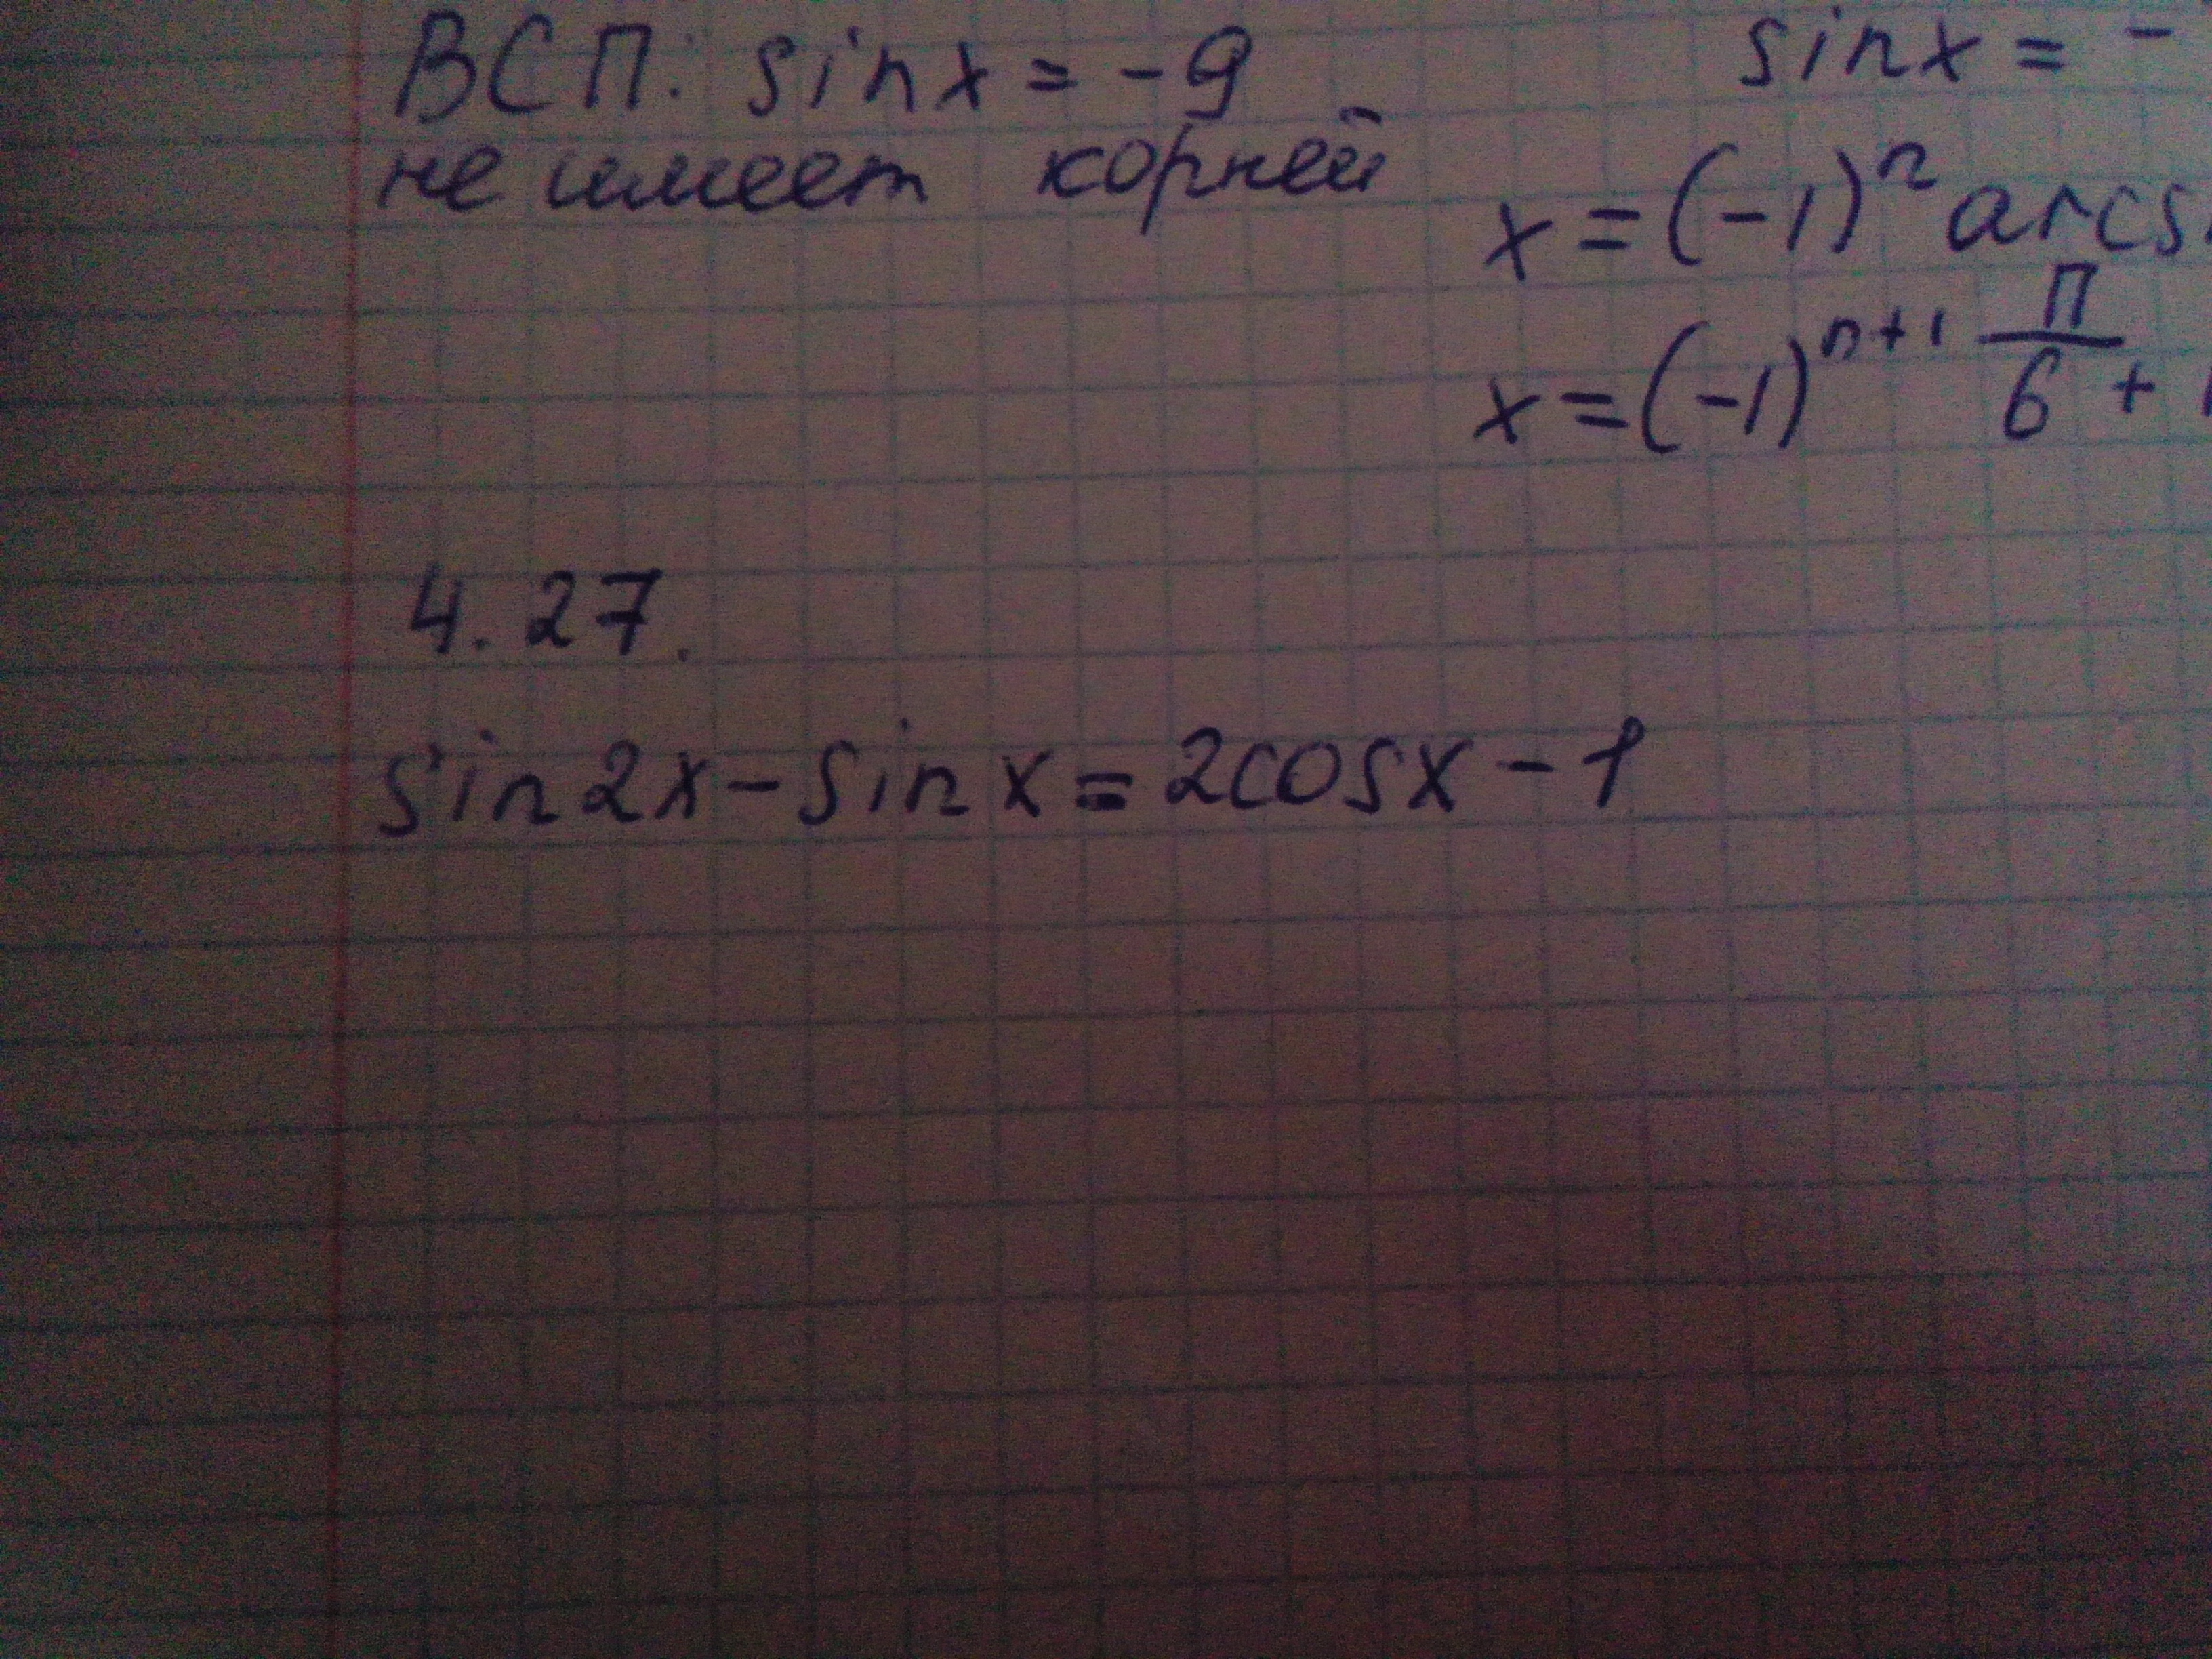 ВСП: sinx = -9
не имеет корней
sinx = -
x = (-1)ⁿ arcs
x = (-1)ⁿ⁺¹ П/6 +
4.27.
sin2x - sinx = 2cosx - 1